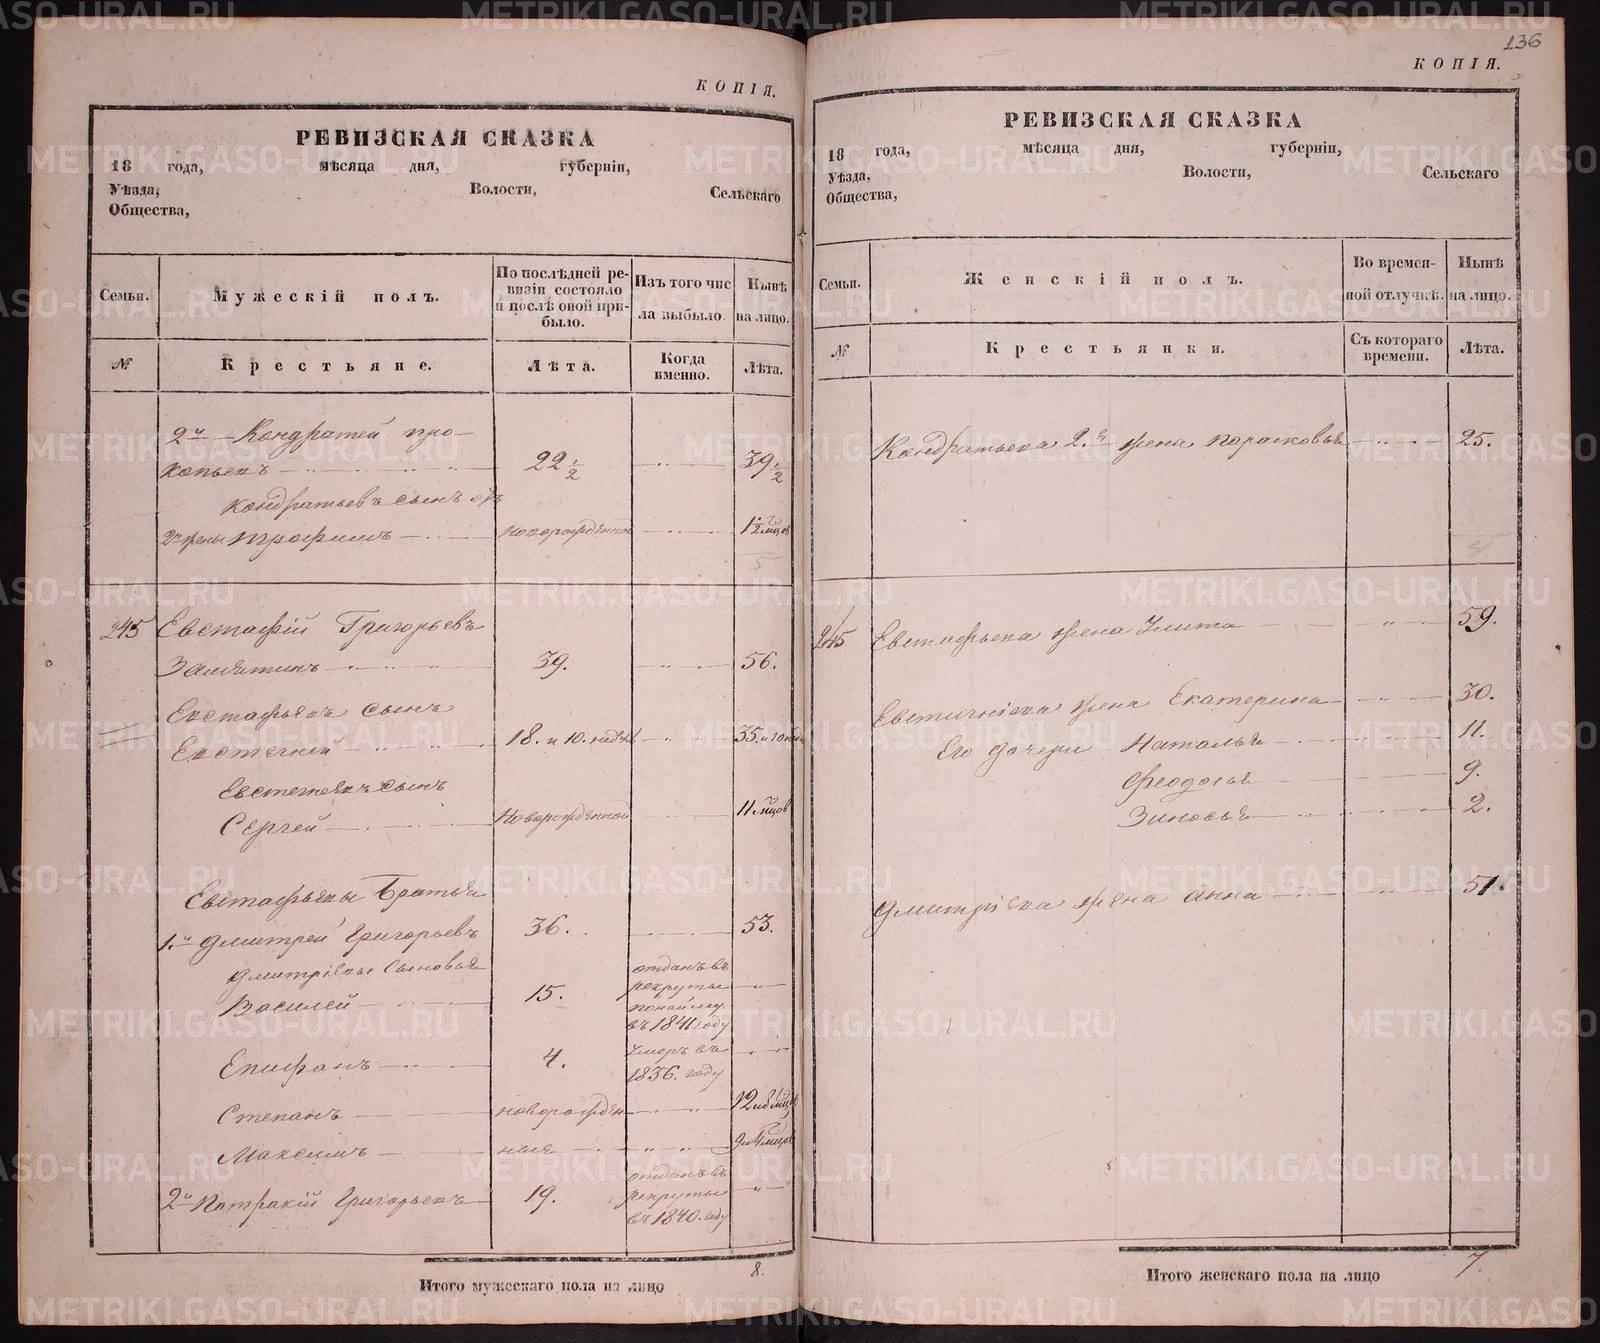 КОПІЯ.
РЕВИЗСКАЯ СКАЗКА
18 года, мѣсяца дня, губерніи,
Уѣзда, Волости, Сельскаго
Общества,
Семьи.
Мужескій полъ.
По послѣдней ре-
визіи состояло
и послѣ оной при-
было.
Изъ того чис
ла выбыло.
Нынѣ
на лицо.
№
Крестьяне.
Лѣта.
Когда
именно.
Лѣта.
2й Кондратей про-
копьевъ 22 1/2 39 1/2
Кондратьевъ сынъ отъ
2й жены Трофимъ новорожденной 1 1/2 мцов
5
245 Евстафій Григорьевъ
Замятинъ 39. 56.
Евстафьевъ сынъ
Евстегней 18. и 10. недѣль 35. и 10
Евстегнеевъ сынъ
Сергей Новорожденной 11 мцов
Евстафьевы Братья
1й Дмитрей Григорьевъ 36. 53.
Дмитріевы Сыновья
Василей 15. отданъ въ
рекруты
по найму
въ 1841 году
Епифанъ 4. Умеръ въ
1836. году
Степанъ новорожден 12
Максимъ ные 9
2й Патракій Григорьевъ 19. отданъ въ
рекруты
въ 1840. году
Итого мужескаго пола на лицо 8.
136
КОПІЯ.
РЕВИЗСКАЯ СКАЗКА
18 года, мѣсяца дня, губерніи,
Уѣзда, Волости, Сельскаго
Общества,
Семьи.
Женскій полъ.
Во времен-
ной отлучкѣ.
Нынѣ
на лицо.
№
Крестьянки.
Съ котораго
времени.
Лѣта.
Кондратьева 2.я жена Парасковья 25.
4
245 Евстафьева жена Улита 59.
Евстигніева жена Екатерина 30.
Его дочери Наталья 11.
Феодосья 9.
Зиновья 2.
Дмитріева жена Анна 51.
Итого женскаго пола на лицо 7.
METRIKI.GASO-URAL.RU